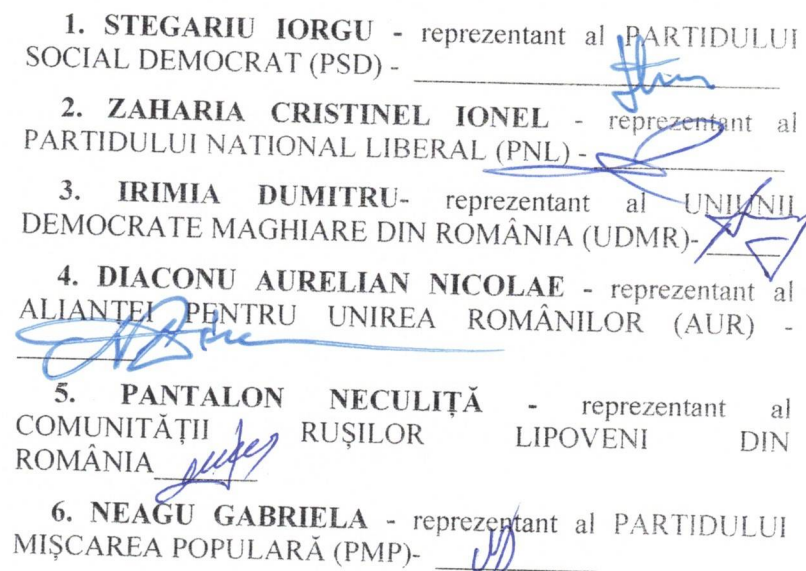 1. STEGARIU IORGU - reprezentant al PARTIDULUI
SOCIAL DEMOCRAT (PSD) -
2. ZAHARIA CRISTINEL IONEL - reprezentant al
PARTIDULUI NATIONAL LIBERAL (PNL) -
3. IRIMIA DUMITRU- reprezentant al UNIUNII
DEMOCRATE MAGHIARE DIN ROMÂNIA (UDMR)-
4. DIACONU AURELIAN NICOLAE - reprezentant al
ALIANȚEI PENTRU UNIREA ROMÂNILOR (AUR) -
5. PANTALON NECULIȚĂ - reprezentant al
COMUNITĂȚII RUȘILOR LIPOVENI DIN
ROMÂNIA
6. NEAGU GABRIELA - reprezentant al PARTIDULUI
MIȘCAREA POPULARĂ (PMP)-